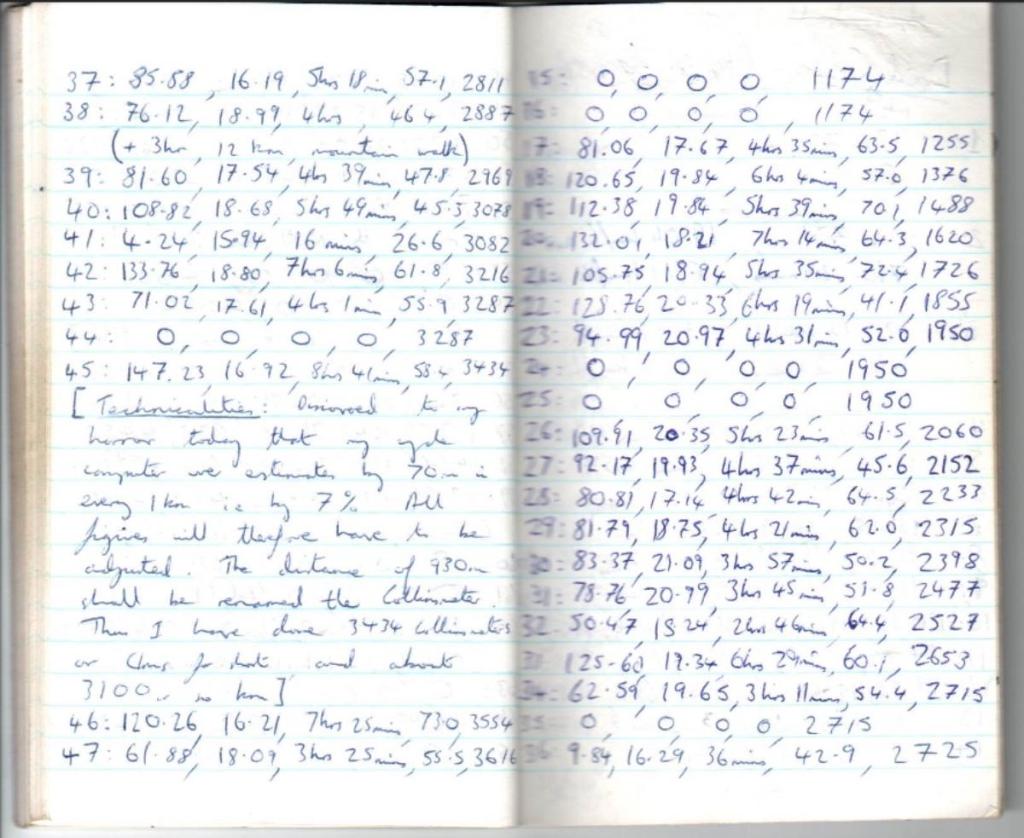 37: 85.88, 16.19, 5hrs 18min, 57.1, 2811
38: 76.12, 18.99, 4hrs, 46.4, 2887
(+ 3hr, 12 km, mountain walk)
39: 81.60, 17.54, 4hrs 39mins, 47.8, 2969
40: 108.82, 18.68, 5hrs 49mins, 45.5, 3078
41: 4.24, 15.94, 16 mins, 26.6, 3082
42: 133.76, 18.80, 7hrs 6mins, 61.8, 3216
43: 71.02, 17.61, 4hrs 1min, 55.9, 3287
44: 0, 0, 0, 0, 3287
45: 147.23, 16.92, 8hrs 41mins, 58.4, 3434
[Technicalities: Discovered to my
horror today that my cycle
computer over estimates by 70m in
every 1km i.e. by 7%. All
figures will therefore have to be
adjusted. The distance of 930m
shall be renamed the Collinometer.
Thus I have done 3434 Collinometers
or Clms for short and about
3100 km]
46: 120.26, 16.21, 7hrs 25mins, 73.0, 3554
47: 61.88, 18.09, 3hrs 25mins, 55.5, 3616
15: 0, 0, 0, 0 1174
16: 0, 0, 0, 0, 1174
17: 81.06, 17.67, 4hrs 35mins, 63.5, 1255
18: 120.65, 19.84, 6hrs 4mins, 57.0, 1376
19: 112.38, 19.84, 5hrs 39mins, 70.1, 1488
20: 132.01, 18.21, 7hrs 14mins, 64.3, 1620
21: 105.75, 18.94, 5hrs 35mins, 72.4, 1726
22: 128.76, 20.33, 6hrs 19mins, 41.1, 1855
23: 94.99, 20.97, 4hrs 31min, 52.0, 1950
24: 0, 0, 0, 0, 1950
25: 0, 0, 0, 0, 1950
26: 109.91, 20.35, 5hrs 23mins, 61.5, 2060
27: 92.17, 19.93, 4hrs 37mins, 45.6, 2152
28: 80.81, 17.14, 4hrs 42min, 64.5, 2233
29: 81.79, 18.75, 4hrs 21mins, 62.0, 2315
30: 83.37, 21.09, 3hrs 57mins, 50.2, 2398
31: 78.76, 20.99, 3hrs 45min, 51.8, 2477
32: 50.47, 18.24, 2hrs 46mins, 64.4, 2527
33: 125.60, 19.34, 6hrs 29mins, 60.1, 2653
34: 62.59, 19.65, 3hrs 11mins, 54.4, 2715
35: 0, 0, 0, 0 2715
36: 9.84, 16.29, 36mins, 42.9, 2725